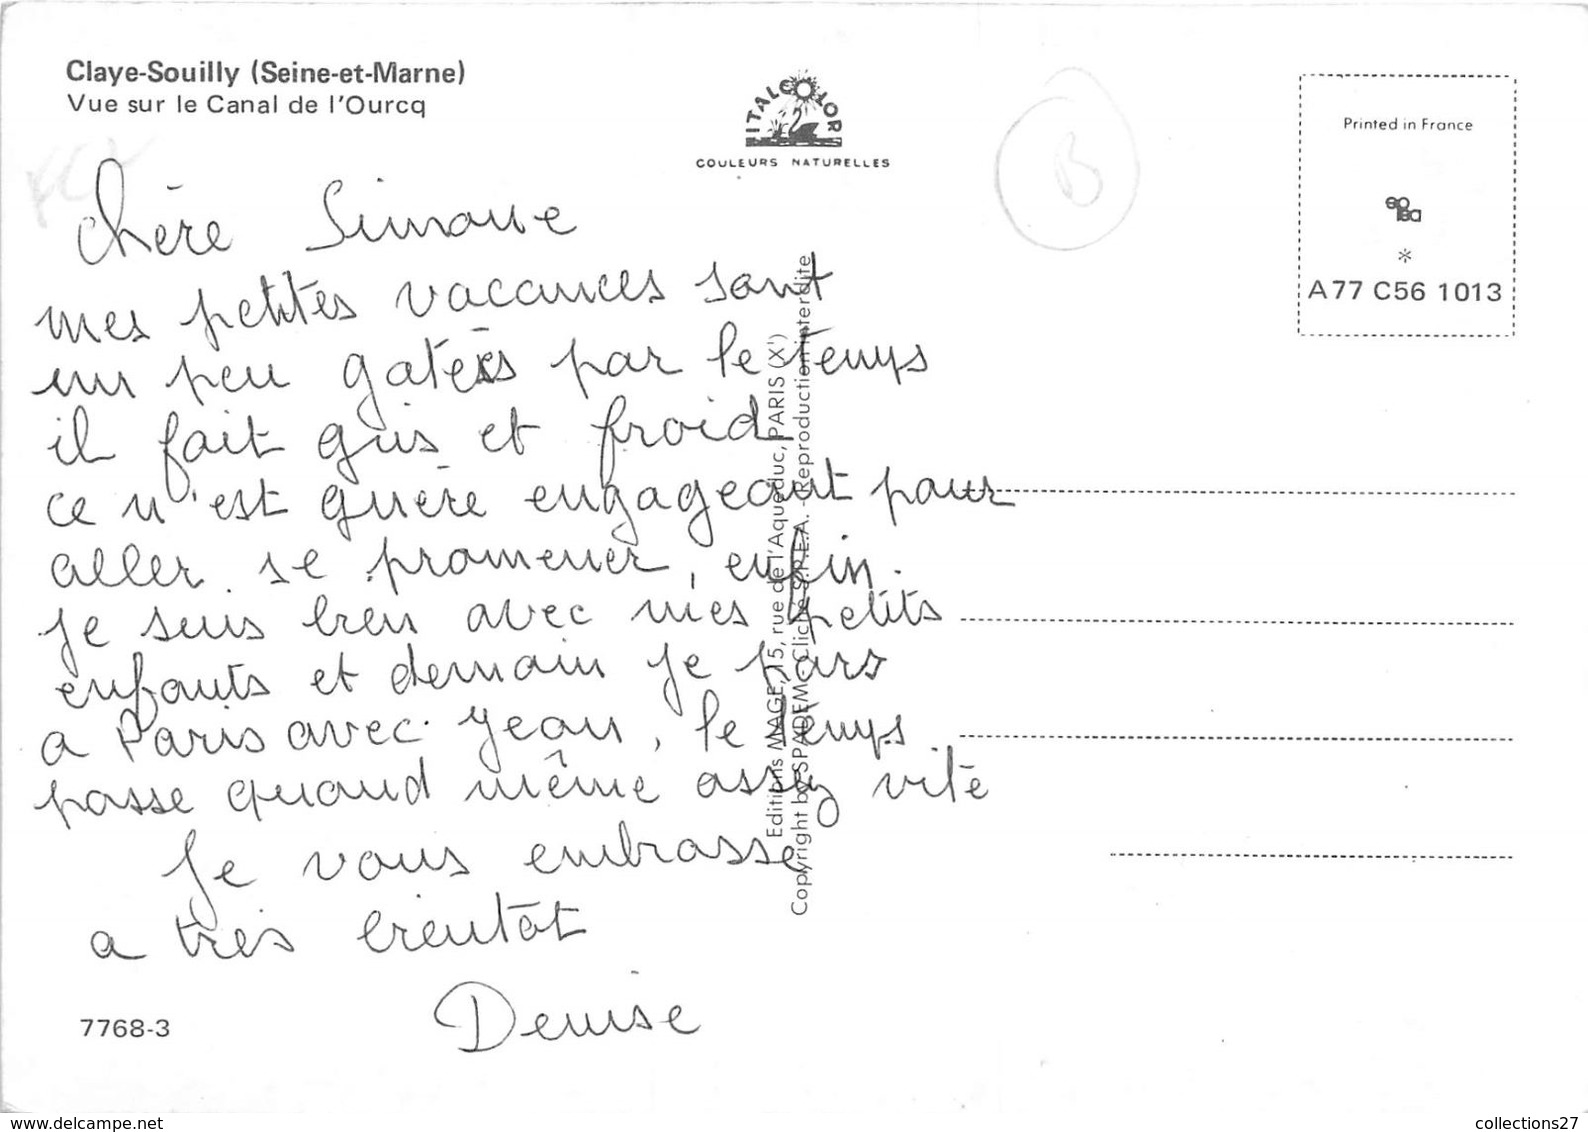 Claye-Souilly (Seine-et-Marne)
Vue sur le Canal de l'Ourcq
ITALCOLOR
COULEURS NATURELLES
B
Printed in France
*
A77 C56 1013
Chère Simone
mes petites vacances sont
un peu gatées par le temps
il fait gris et froid
ce n'est guère engageant pour
aller se promener, enfin.
je suis bien avec mes petits
enfants et demain je pars
a Paris avec Jean, le temps
passe quand même assez vite
Je vous embrasse
a très bientôt
Denise
Editions MAGE, 15, rue de l'Aqueduc, PARIS (Xe)
Copyright by SPADEM - Cliché S.P.E.A. - Reproduction interdite
7768-3
www.delcampe.net
collections27